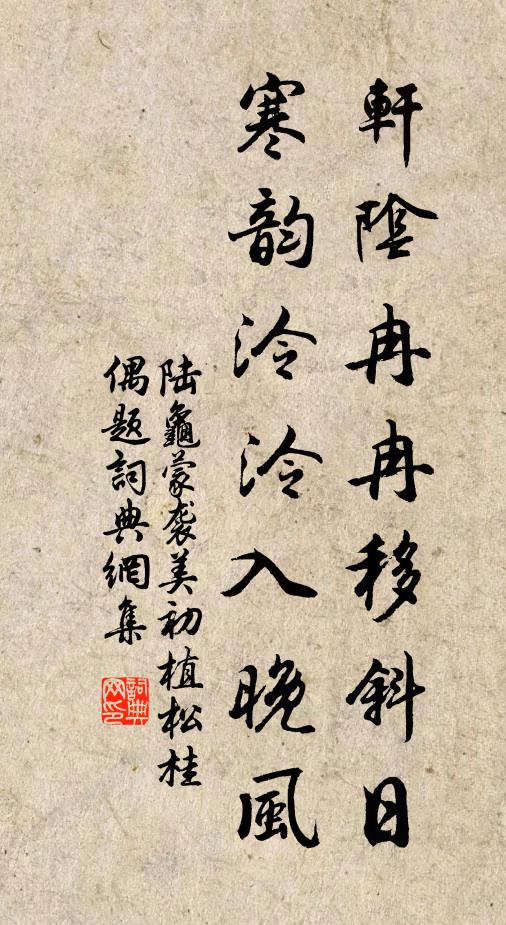 軒陰冉冉移斜日
寒韵泠泠入晚風
陆龜蒙袭美初植松桂
偶题詞典網集
詞典网印